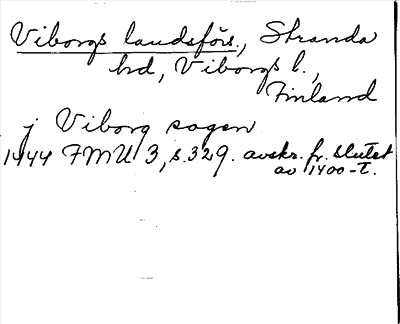 Viborgs landsförs., Stranda
hd, Viborgs l.,
Finland
j Viborg sogen
1444 FMU 3, s. 329. avskr. fr. slutet
av 1400-t.